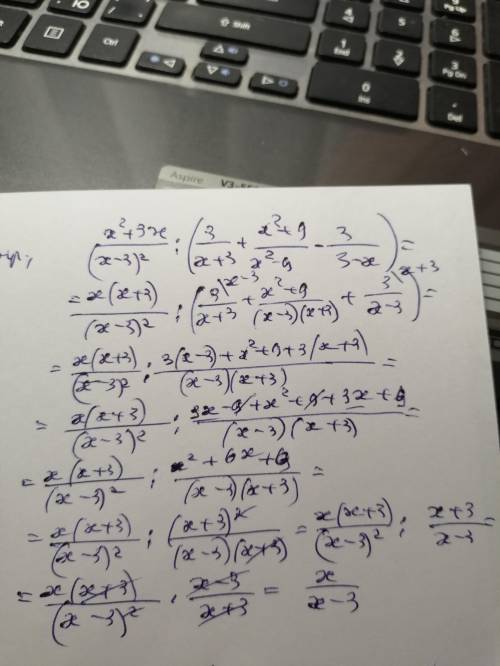 Shift
Ctrl
1
End
2
3
Pg Dn
4
5
6
0
Ins
Del
Pg Up
Aspire
V3-
(x²+3x)/(x-3)² : (3/(x+3) + (x²+9)/(x²-9) - 3/(3-x)) =
= x(x+3)/(x-3)² : (3\x-3/(x+3) + (x²+9)/((x-3)(x+3)) + 3\x+3/(x-3)) =
= x(x+3)/(x-3)² : (3(x-3)+x²+9+3(x+3))/((x-3)(x+3)) =
= x(x+3)/(x-3)² : (3x-9+x²+9+3x+9)/((x-3)(x+3)) =
= x(x+3)/(x-3)² : (x²+6x+9)/((x-3)(x+3)) =
= x(x+3)/(x-3)² : (x+3)²/((x-3)(x+3)) = x(x+3)/(x-3)² : (x+3)/(x-3) =
= x(x+3)/(x-3)² · (x-3)/(x+3) = x/(x-3)